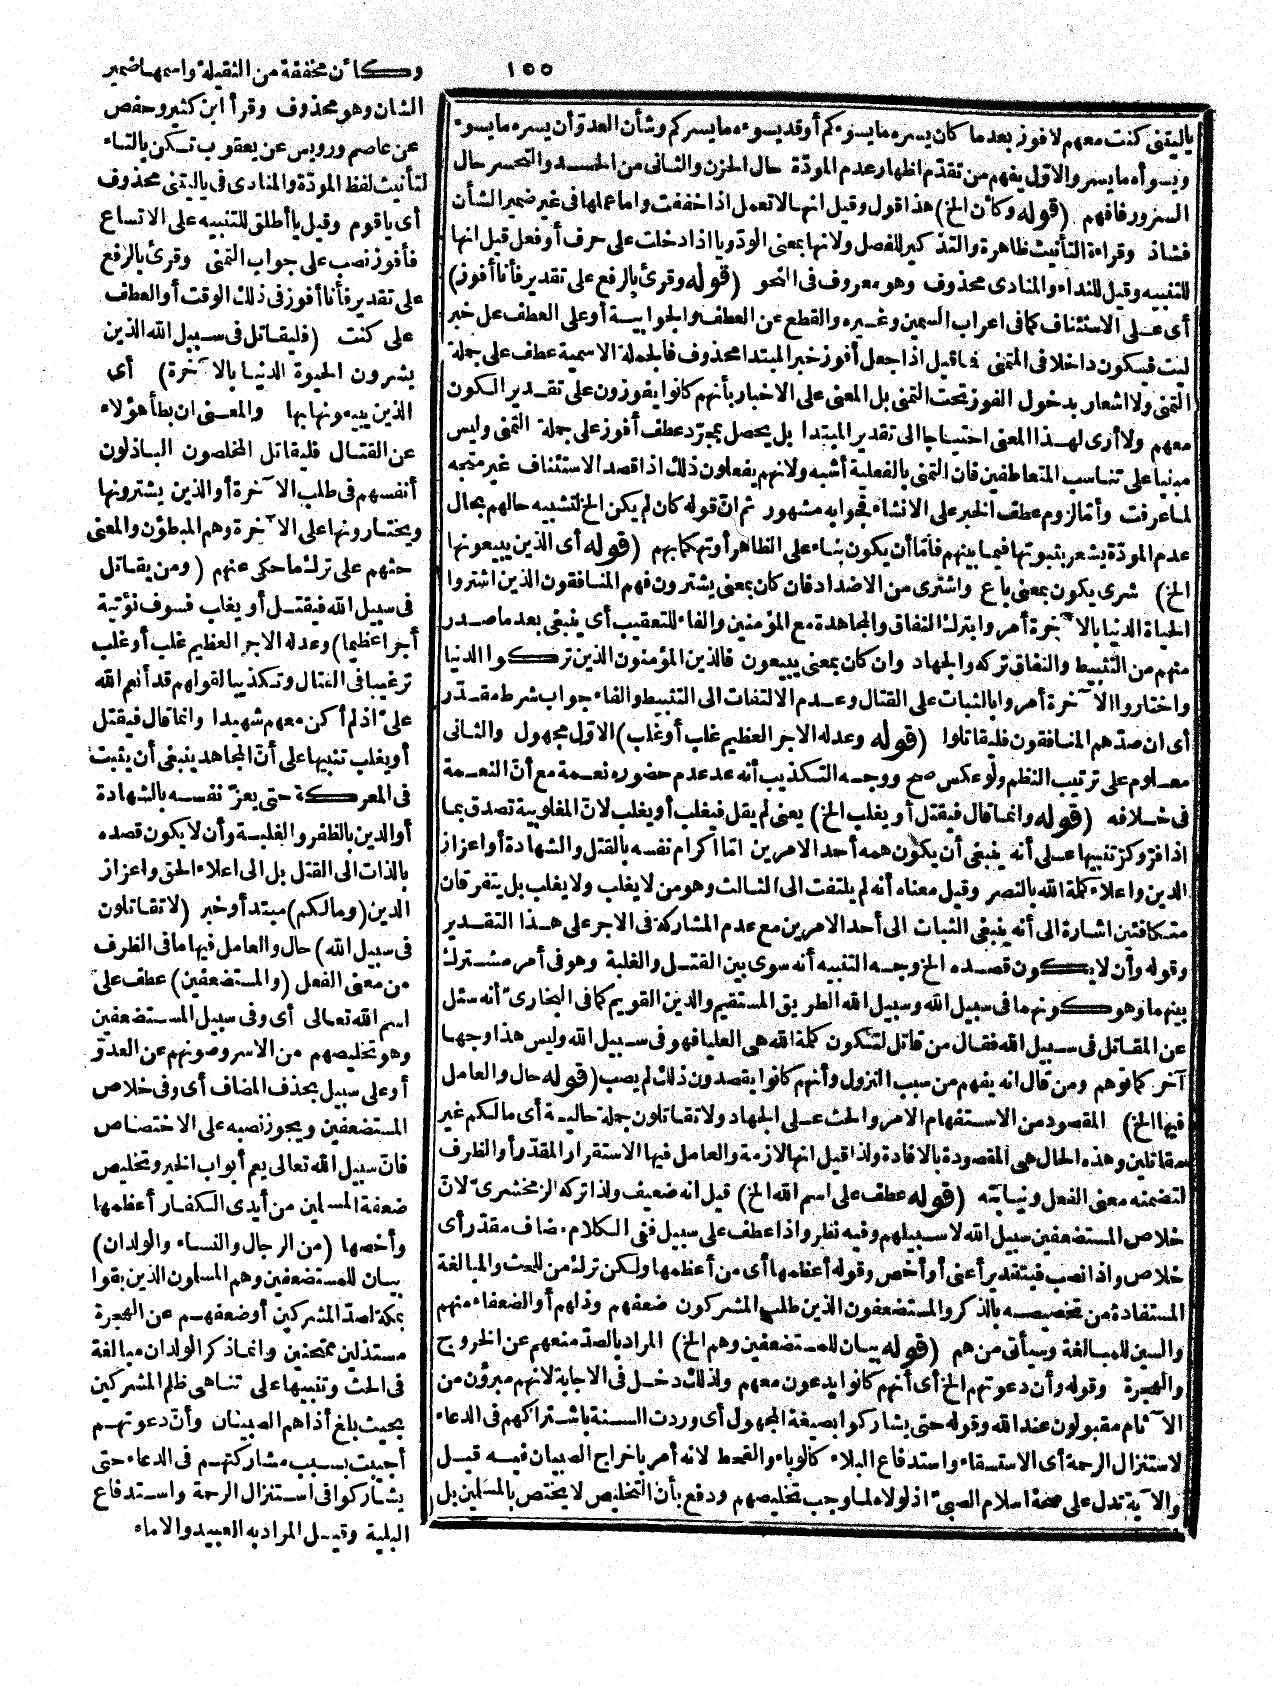 ١٥٥
ياليتنى كنت معهم لا فوز بعدما كان يسره ما يسوءكم أو قد يسوءه ما يسركم وشأن العدو أن يسره ما يسوء
ويسوأه ما يسر والاول يفهم من تقدم اظهار عدم المودّة حال الحزن والثانى من الحسد والتحسر حال
السرور فافهم (قوله وكأن الخ) هذا قول وقيل انها لا تعمل اذا خففت واما عملها فى غير ضمير الشأن
فشاذ وقراءة التأنيث ظاهرة والتذكير للفصل ولانها بمعنى الودّ ويا اذا دخلت على حرف أو فعل قيل انها
للتنبيه وقيل للنداء والمنادى محذوف وهو معروف فى النحو (قوله وقرئ بالرفع على تقدير فأنا أفوز)
أى على الاستئناف كما فى اعراب السمين وغيره والقطع عن العطف والجوابية أو على العطف على خبر
ليت فيكون داخلا فى المتمنى فما قيل اذا جعل أفوز خبر المبتدا محذوف فالجملة الاسمية عطف على جملة
التمنى ولا اشعار بدخول الفوز تحت التمنى بل المعنى على الاخبار بأنهم كانوا يفوزون على تقدير الكون
معهم ولا أرى لهذا المعنى احتياجا الى تقدير المبتدا بل يحصل بمجرّد عطف أفوز على جملة التمنى وليس
مبنيا على تناسب المتعاطفين فان التمنى بالفعلية أشبه ولانهم يفعلون ذلك اذا قصد الاستئناف غير متجه
لما عرفت وأما لزوم عطف الخبر على الانشاء فجوابه مشهور ثم انّ قوله كان لم يكن الخ لتشبيه حالهم بحال
عدم المودّة يشعر بثبوتها فيما بينهم فأمّا أن يكون بناء على الظاهر أو تهكما بهم (قوله أى الذين يبيعونها
الخ) شرى يكون بمعنى باع واشترى من الاضداد فان كان بمعنى يشترون فهم المنافقون الذين اشتروا
الحياة الدنيا بالآخرة أمروا بترك النفاق والمجاهدة مع المؤمنين والفاء للتعقيب أى ينبغى بعد ما صدر
منهم من التثبيط والنفاق تركه والجهاد وان كان بمعنى يبيعون فالذين المؤمنون الذين تركوا الدنيا
واختاروا الآخرة أمروا بالثبات على القتال وعدم الالتفات الى التثبيط والفاء جواب شرط مقدّر
أى ان صدّهم المنافقون فليقاتلوا (قوله وعدله الاجر العظيم غلب أو غلب) الاوّل مجهول والثانى
معلوم على ترتيب النظم ولو عكس صح ووجه التكذيب أنه عد عدم حضوره نعمة مع أنّ النعمة
فى خلافه (قوله وانما قال فيقتل أو يغلب الخ) يعنى لم يقل فيغلب أو يغلب لانّ المغلوبية تصدق بما
اذا فرّ وكرّ تنبيها على أنه ينبغى أن يكون همه أحد الامرين امّا اكرام نفسه بالقتل والشهادة أو اعزاز
الدين واعلاء كلمة الله بالنصر وقيل معناه أنه لم يلتفت الى الثالث وهو من لا يغلب ولا يغلب بل يتفرقان
متكافئين اشارة الى أنه ينبغى الثبات الى أحد الامرين مع عدم المشاركة فى الاجر على هذا التقدير
وقوله وأن لا يكون قصده الخ وجه التنبيه أنه سوى بين القتل والغلبة وهو فى أمر مشترك
بينهما وهو كونهما فى سبيل الله وسبيل الله الطريق المستقيم والدين القويم كما فى البخارىّ أنه سئل
عن المقاتل فى سبيل الله فقال من قاتل لتكون كلمة الله هى العليا فهو فى سبيل الله وليس هذا وجها
آخر كما توهم ومن قال انه يفهم من سبب النزول وأنهم كانوا يقصدون ذلك لم يصب (قوله حال والعامل
فيها الخ) المقصود من الاستفهام الامر والحث على الجهاد ولا تقاتلون جملة حالية أى مالكم غير
مقاتلين وهذه الحال هى المقصودة بالافادة ولذا قيل انها لازمة والعامل فيها الاستقرار المقدّر أو الظرف
لتضمنه معنى الفعل ونيابته (قوله عطف على اسم الله الخ) قيل انه ضعيف ولذا تركه الزمخشرىّ لانّ
خلاص المستضعفين سبيل الله لا سبيلهم وفيه نظر واذا عطف على سبيل ففى الكلام مضاف مقدّر أى
خلاص واذا نصب فبتقدير أعنى أو أخص وقوله أعظمها أى من أعظمها ولكن ترك من للحث والمبالغة
المستفادة من تخصيصه بالذكر والمستضعفون الذين طلب المشركون ضعفهم وذلهم أو الضعفاء منهم
والسين للمبالغة وسيأتى من هم (قوله بيان للمستضعفين وهم الخ) المراد بالصدّ منعهم عن الخروج
والهجرة وقوله وأن دعوتهم الخ أى أنهم كانوا يدعون معهم ولذلك دخل فى الاجابة لانهم مبرؤن من
الآثام مقبولون عند الله وقوله حتى يشاركوا بصيغة المجهول أى وردت السنة باشتراكهم فى الدعاء
لاستنزال الرحمة أى الاستسقاء واستدفاع البلاء كالوباء والقحط لانه أمر باخراج الصبيان فيه قيل
والآية تدل على صحة اسلام الصبىّ اذ لولاه لما وجب تخليصهم ودفع بأن التخليص لا يختص بالمسلمين بل
وكأن مخففة من الثقيلة واسمها ضمير
الشان وهو محذوف وقرأ ابن كثير وحفص
عن عاصم ورويس عن يعقوب تكن بالتاء
لتأنيث لفظ المودّة والمنادى فى ياليتنى محذوف
أى ياقوم وقيل ياأطلق للتنبيه على الاتساع
فأفوز نصب على جواب التمنى وقرئ بالرفع
على تقدير فأنا أفوز فى ذلك الوقت أو العطف
على كنت (فليقاتل فى سبيل الله الذين
يشرون الحيوة الدنيا بالآخرة) أى
الذين يبيعونها بها والمعنى ان بطأ هؤلاء
عن القتال فليقاتل المخلصون الباذلون
أنفسهم فى طلب الآخرة أو الذين يشترونها
ويختارونها على الآخرة وهم المبطؤن والمعنى
حثهم على ترك ما حكى عنهم (ومن يقاتل
فى سبيل الله فيقتل أو يغلب فسوف نؤتيه
أجرا عظيما) وعد له الاجر العظيم غلب أو غلب
ترغيبا فى القتال وتكذيبا لقولهم قد أنعم الله
علىّ اذ لم أكن معهم شهيدا وانما قال فيقتل
أو يغلب تنبيها على أنّ المجاهد ينبغى أن يثبت
فى المعركة حتى يعزّ نفسه بالشهادة
أو الدين بالظفر والغلبة وأن لا يكون قصده
بالذات الى القتل بل الى اعلاء الحق واعزاز
الدين (ومالكم) مبتدأ وخبر (لا تقاتلون
فى سبيل الله) حال والعامل فيها ما فى الظرف
من معنى الفعل (والمستضعفين) عطف على
اسم الله تعالى أى وفى سبيل المستضعفين
وهو تخليصهم من الاسر وصونهم عن العدوّ
أو على سبيل بحذف المضاف أى وفى خلاص
المستضعفين ويجوز نصبه على الاختصاص
فانّ سبيل الله تعالى يعم أبواب الخير وتخليص
ضعفة المسلمين من أيدى الكفار أعظمها
وأخصها (من الرجال والنساء والولدان)
بيان للمستضعفين وهم المسلمون الذين بقوا
بمكة لصدّ المشركين أو ضعفهم عن الهجرة
مستذلين ممتحنين وانما ذكر الولدان مبالغة
فى الحث وتنبيها على تناهى ظلم المشركين
بحيث بلغ أذاهم الصبيان وأنّ دعوتهم
أجيبت بسبب مشاركتهم فى الدعاء حتى
يشاركوا فى استنزال الرحمة واستدفاع
البلية وقيل المراد به العبيد والاماء